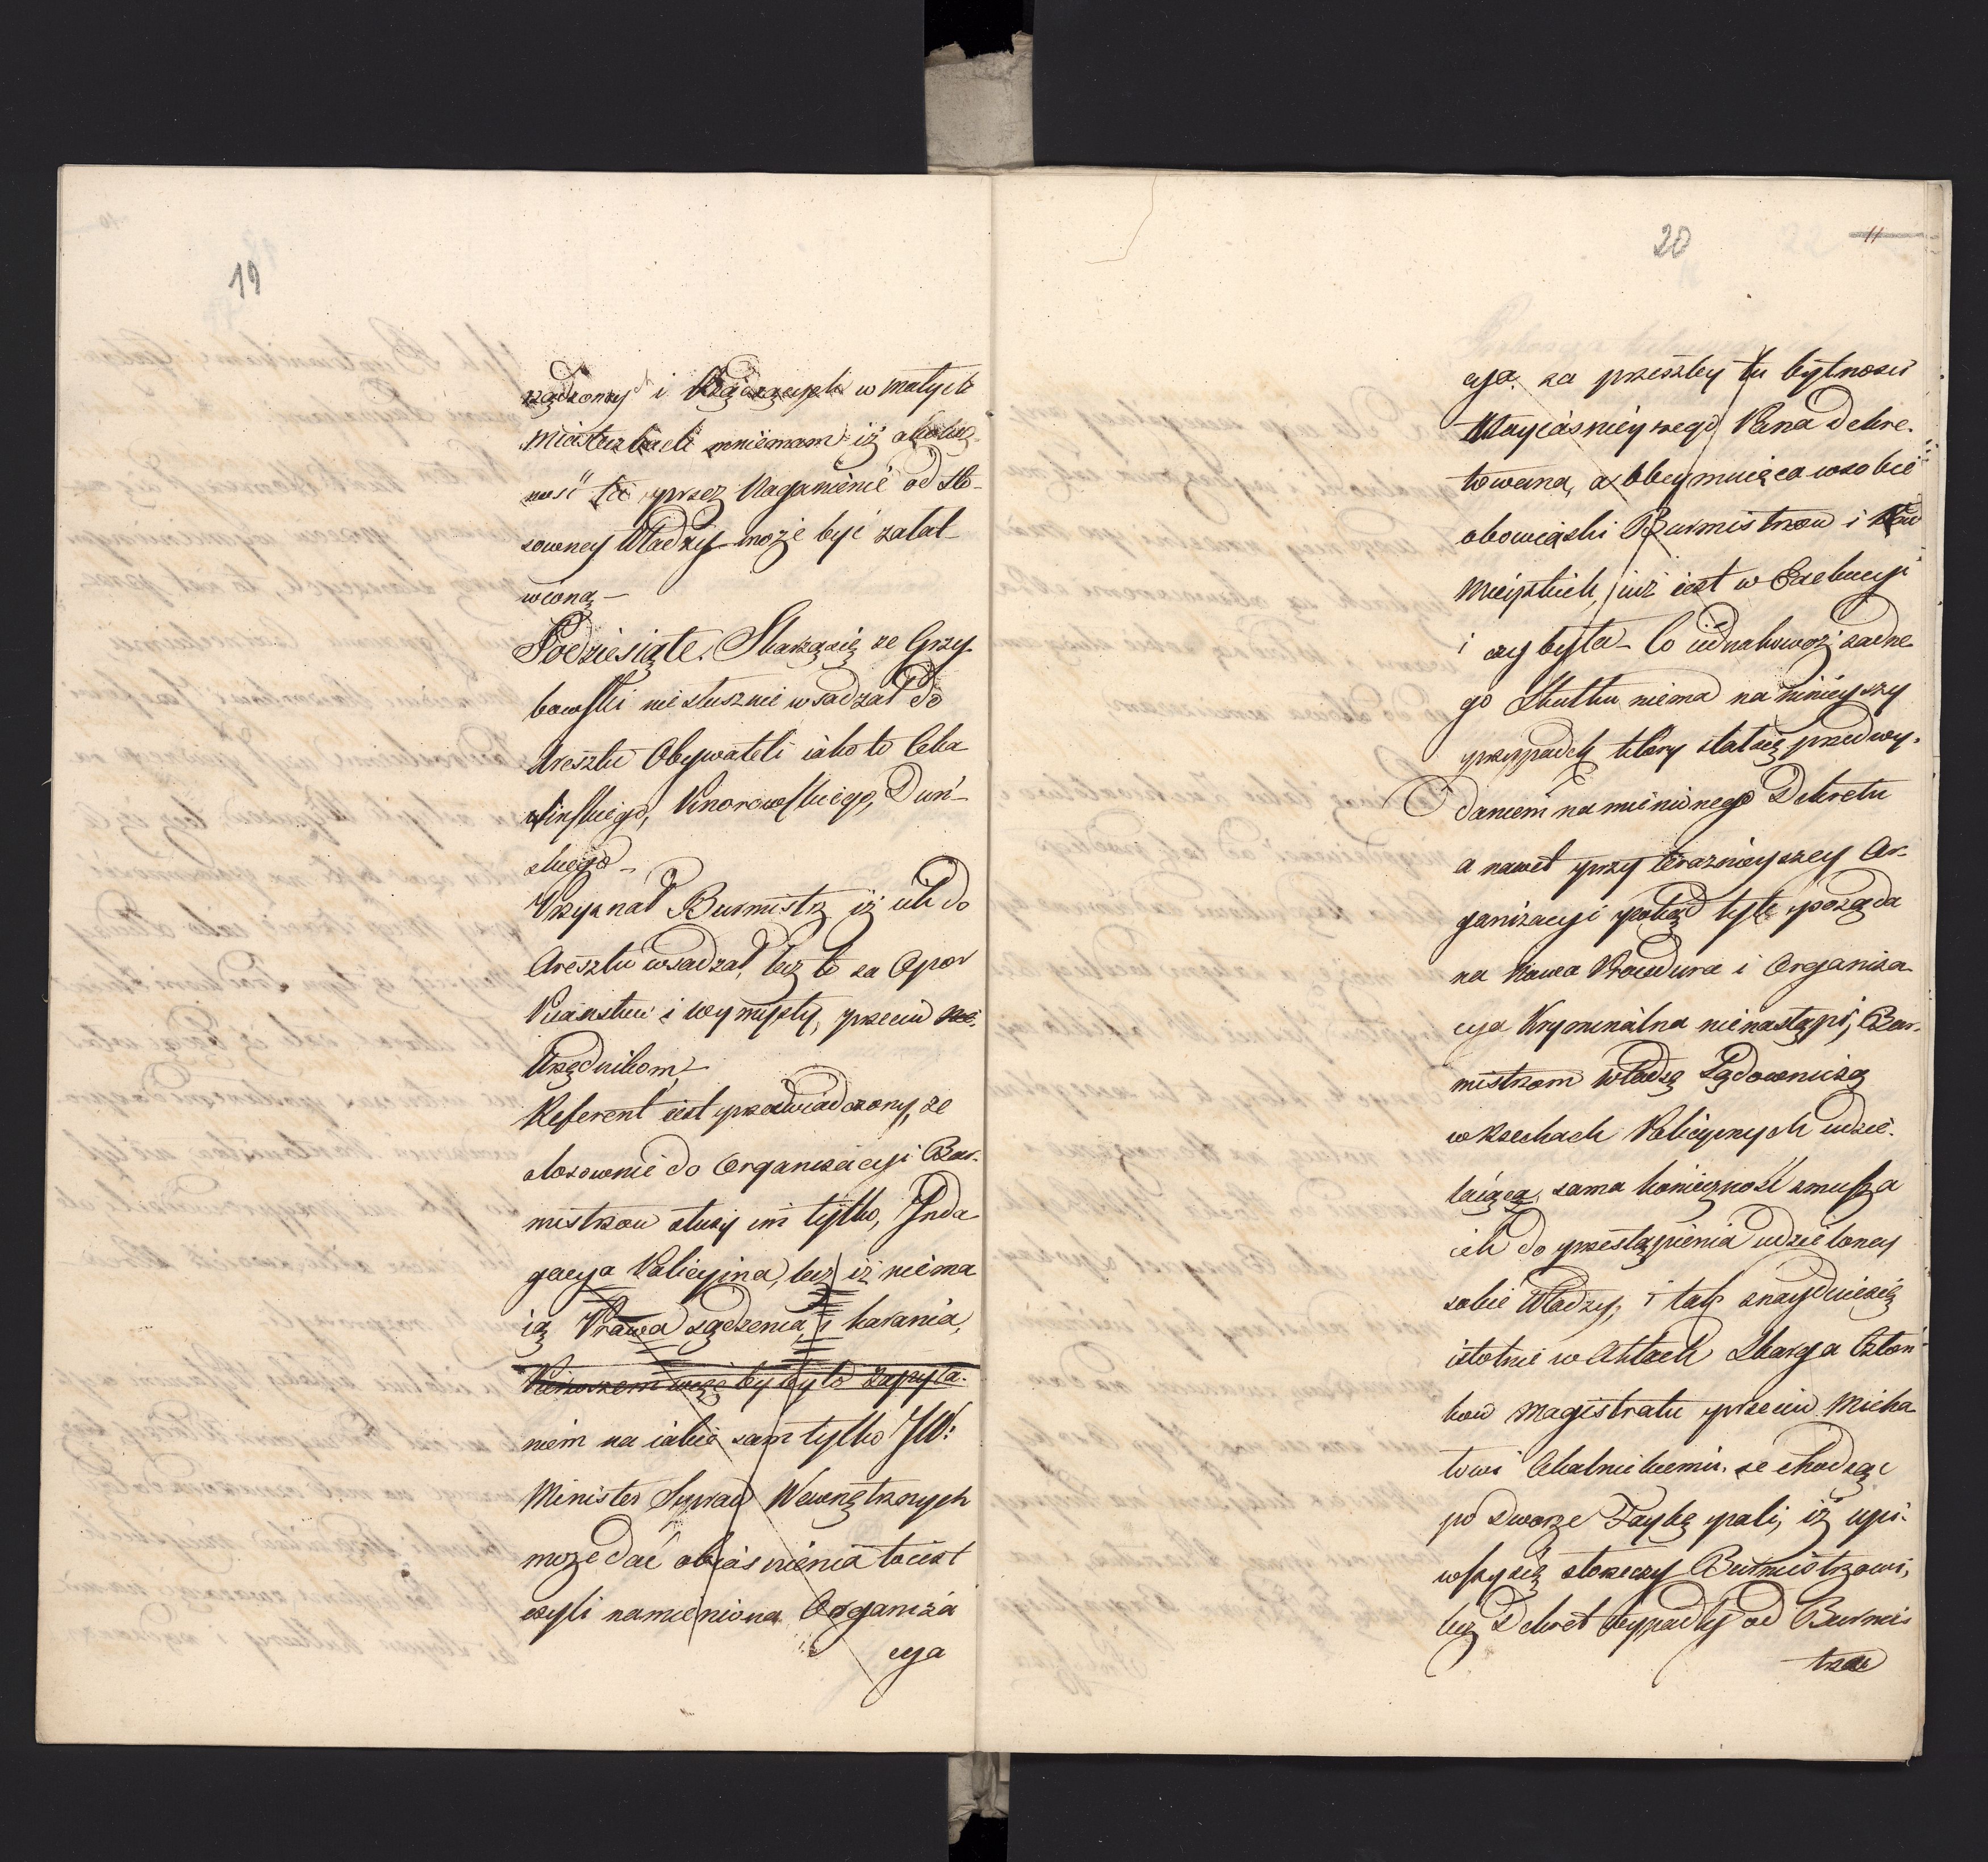 19
rządzonych i Rządzących w małych
Miasteczkach mniemam iż okolicz
ność ta przez Naganienie od Sto-
sowney Władzy może być załat
wioną –
Podziesiąte. Skarzą się ze Grzy
bowski niesłusznie wsadzał do
Aresztu Obywateli iako to
Knorowskiego, Duń-
skiego –
Przyznał Burmistrz iż ich do
Aresztu wsadzał, lecz to za Opor
Piiaństwo i wymysły, przeciw
Urzędnikom –
Referent iest przeświadczony, ze
stosownie do Organizacyi Bur-
mistrzow służy im tylko, Inda
gacya Policyjna, lecz iż niema
ią Prawa sądzenia, i karania,
więc by było zapyta-
niem na iakie sam tylko JW:
Minister Spraw Wewnętrznych
może dać obiaśnienia to iest
czyli namieniona Organiza
cya
20
11
cya za przeszłey tu bytnosci
Nayiaśnieyszego Pana dekre-
towana, a obeymuiąca w sobie
obowiązki Burmistrzow i
Mieyskich, iuż iest w Exekucyi
i czy była – Co iednakowoż zadne
go Skutku niema na ninieyszy
przypadek ktory stał się przed wy-
daniem namienionego Dekretu
a nawet przy terazniejszey Or-
ganizacyi pokąd tyle pożąda
na Nowa Procedura i Organiza
cya Kryminalna nienastąpi, Bur-
mistrzom władzę Sądowniczą
w Rzechach Policyinych udzie-
laiącą, sama konieczność zmusza
ich do przestąpienia udzieloney
sobie Władzy, i tak znayduie się
istotnie w Aktach Skarga Człon
kow Magistratu przeciw Micha
łowi ze chodząc
po dworze Faykę pali, iż upi-
wszy się złorzeczy Burmistrzowi,
lecz Dekret wypadły od Burmis
trza